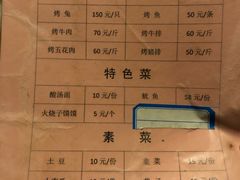 烤兔 150元/只 烤鱼 50元/条
烤牛肉 70元/斤 烤牛排 60元/斤
烤五花肉 60元/斤 烤猪排 50元/斤
特色菜
酸汤面 10元/份 鱿鱼 58元/份
火烧子馍馍 5元/个
素菜
土豆 10元/份 韭菜 15元/份